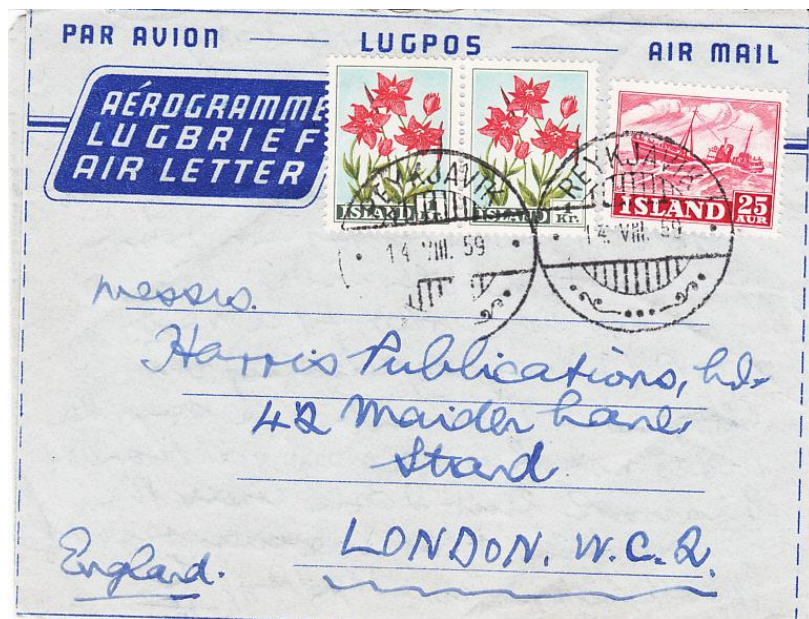 PAR AVION LUGPOS AIR MAIL
AÉROGRAMME
LUGBRIEF
AIR LETTER
ÍSLAND 1 KR.
ÍSLAND KR.
ÍSLAND 25 AUR
REYKJAVÍK
14. VIII. 59
REYKJAVÍK
14. VIII. 59
Messrs.
Harris Publications, Ld.
42 Maiden Lane,
Strand.
LONDON. W.C.2.
England.